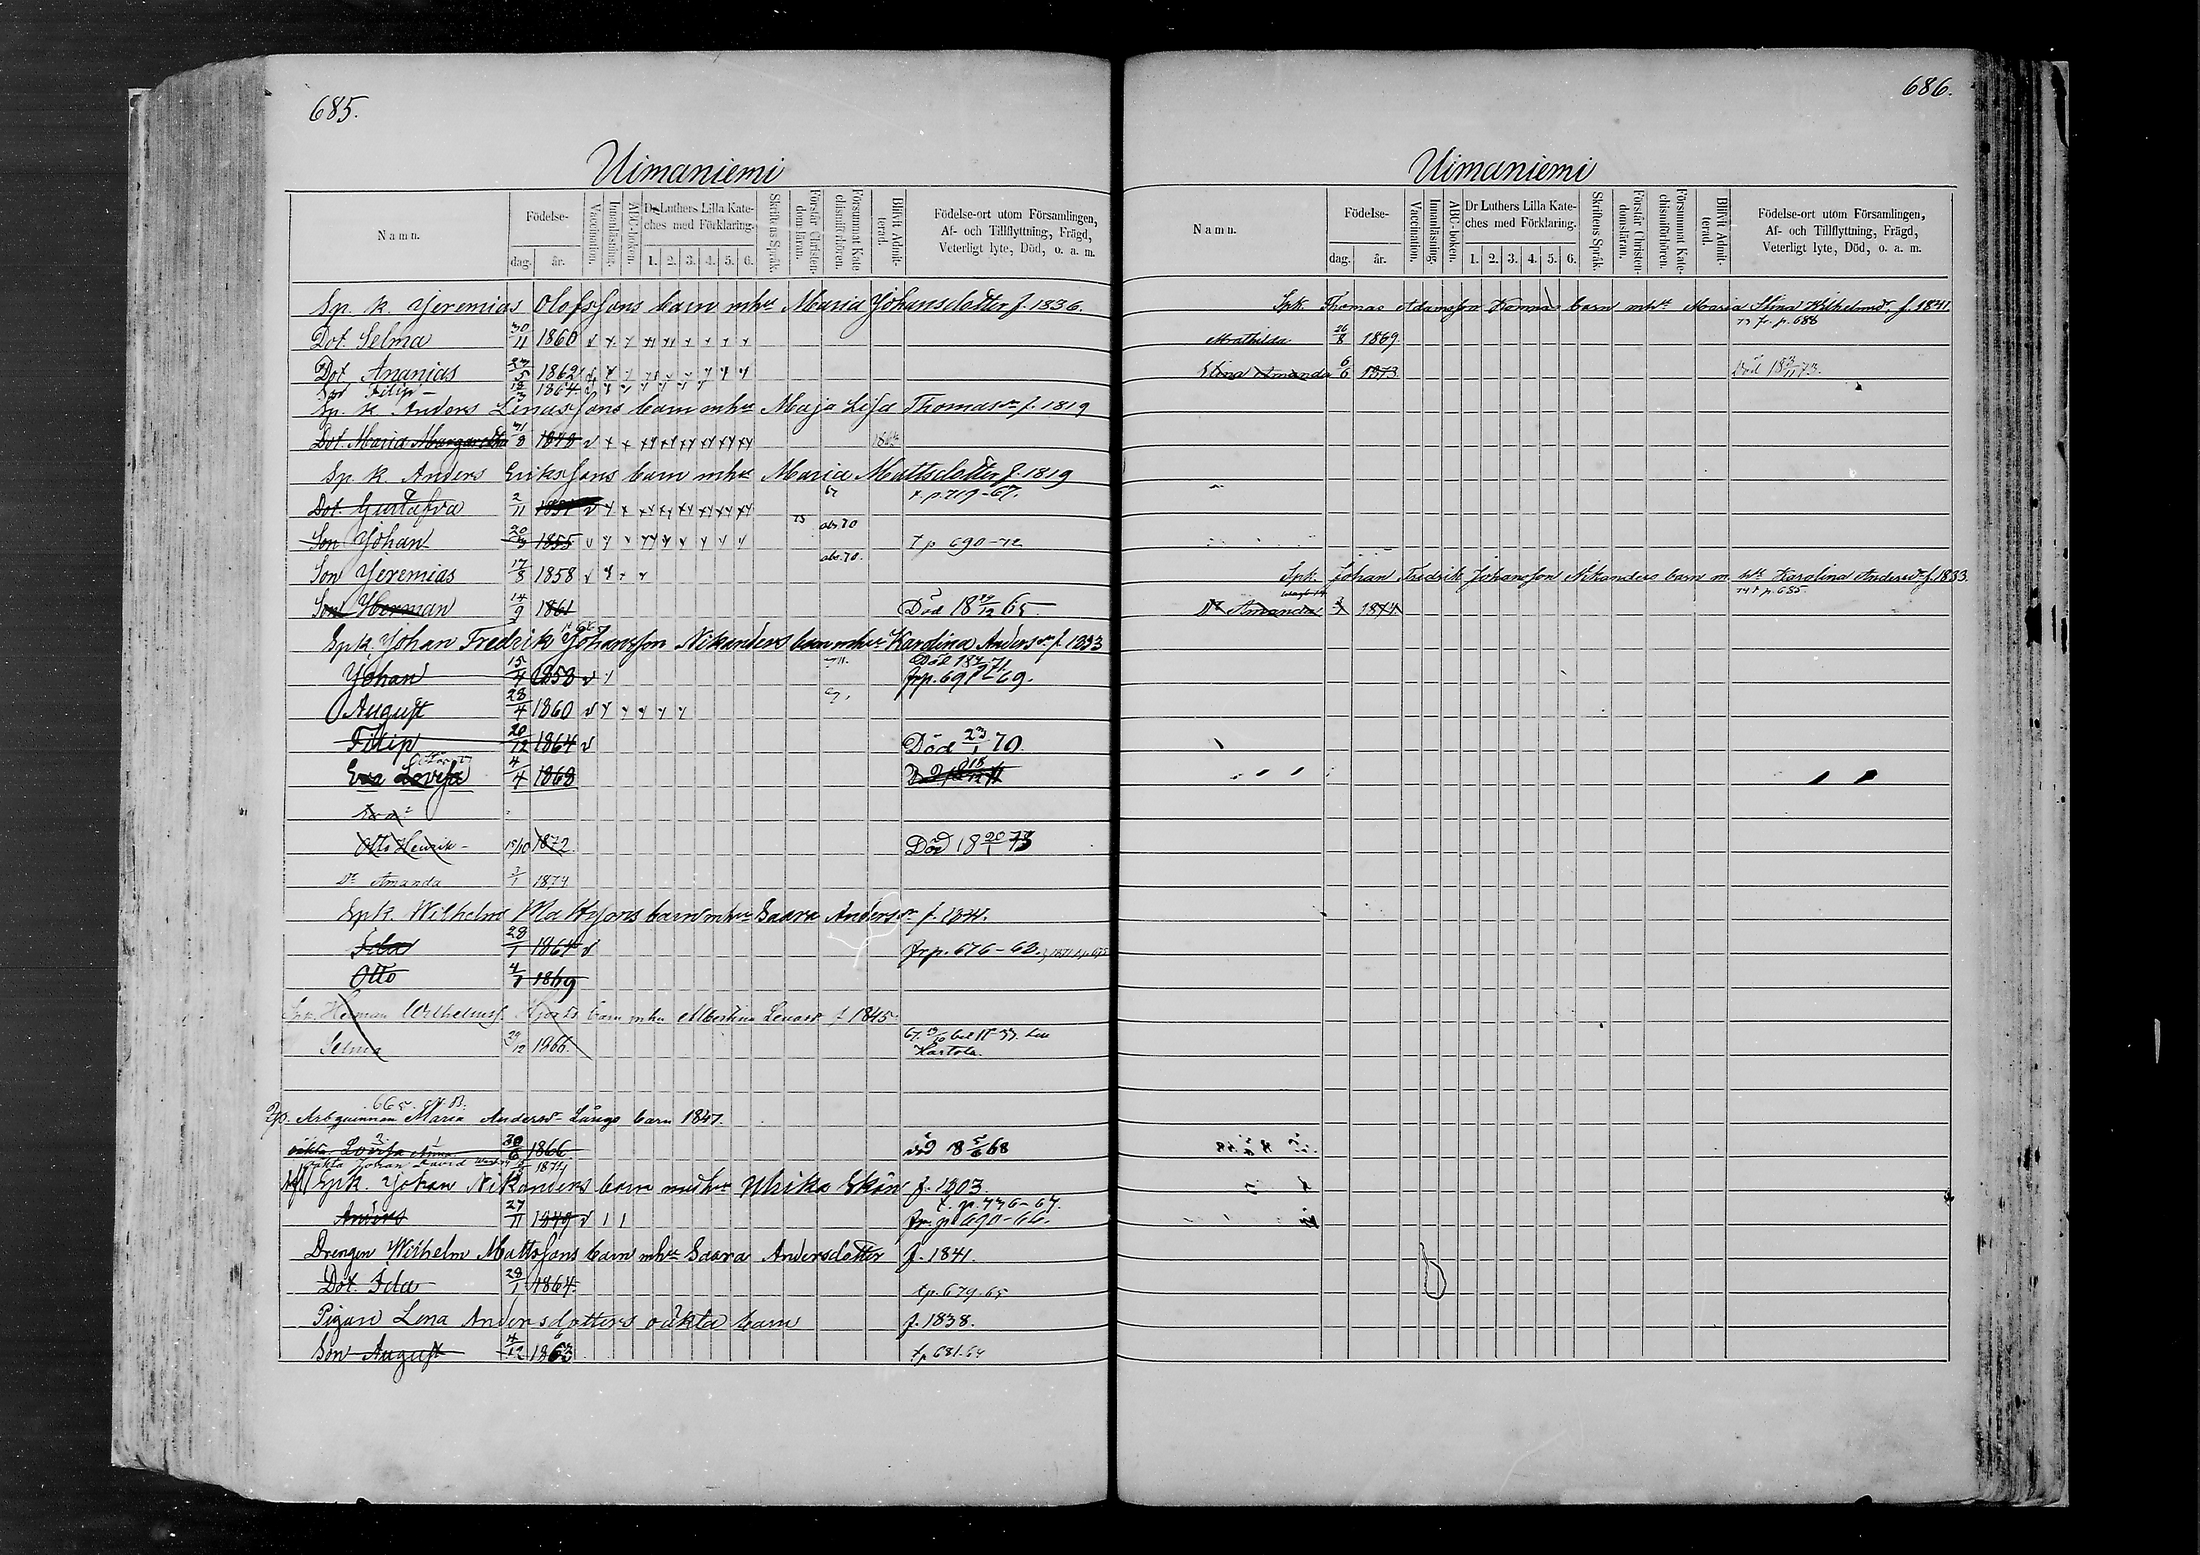 685.
Uimaniemi
Namn.
Födelse-
dag. år.
Vaccination.
Innanläsning.
ABC-boken.
Dr Luthers Lilla Kateches med Förklaring.
1. 2. 3. 4. 5. 6.
Skriftens Språk.
Förstår Christendomsläran.
Försummat Katechismiförhören.
Blifvit Admitterad.
Födelse-ort utom Församlingen, Af- och Tillflyttning, Frägd, Veterligt lyte, Död, o. a. m.
Sp. k. Jeremias Olofssons barn mhu Maria Johansdotter f. 1836.
Dot. Selma 30/11 1860
Ananias 27/5 1862
Filip 1864
Sp. k. Anders Linussons barn mhu Maja Lisa Thomasdr f. 1819
Dot. Maria Margaretha 31/8
Sp. k. Anders Erikssons barn mhu Maria Mattsdotter f. 1819
Dot. Gustafva 2/11 t. p. 719-67.
Son Johan 20/3 1855 obs. 70 t p 690-72
Son Jeremias 17/8 1858 obs. 70.
Son Herman 14/9 1861 Död 18 14/12 65
Spk. Johan Fredrik Johansson Nikanders barn mhu Karolina Andersdr f. 1833
Johan 15/4 1858 frp. 691-69.
August 28/4 1860
Filip 20/12 1864 Död 23/1 70.
Eva Lovisa 4/4 1868
Otto Henrik 15/10 1872 Död 18 20/1 73
Dr Amanda 3/1 1874
Spk. Wilhelm Mattssons barn mhu Saara Andersdr f. 1841.
Ida 28/1 1864 frp. 676-68.
Otto 4/7 1869
Spk. Herman Wilhelmss. barn mhu Albertina f 1845
Selma 1866.
Arbqvinnan Maria Andersdr Långs barn 1847.
oäkta Lovisa 30/6 1866 död 18 5/6 68
oäkta Johan David 1874
Spk. Johan Nikanders barn med hu Ulrika f. 1803.
t. p. 736-67.
Anders 27/11 1849 fr. p 690-66.
Drengen Wilhelm Mattssons barn mhu Saara Andersdotter f. 1841.
Dot. Ida 28/1 1864 tp. 679-65
Pigan Lena Andersdotters oäkta barn f. 1838.
Son August 4/12 t p 681-64
686.
Uimaniemi
Namn.
Födelse-
dag. år.
Vaccination.
Innanläsning.
ABC-boken.
Dr Luthers Lilla Kateches med Förklaring.
1. 2. 3. 4. 5. 6.
Skriftens Språk.
Förstår Christendomsläran.
Försummat Katechismiförhören.
Blifvit Admitterad.
Födelse-ort utom Församlingen, Af- och Tillflyttning, Frägd, Veterligt lyte, Död, o. a. m.
Spk. Thomas Adamsson barn mhu Maria Stina Wilhelmsdr f. 1841.
73 fr. p. 688
Mathilda 26/8 1869.
Stina Amanda 6/6 1873 Död
Spk. Johan Fredrik Johansson Nikanders barn m. hu Karolina Andersdr f. 1833
74 t p. 685.
Dr Amanda 3/1 1874